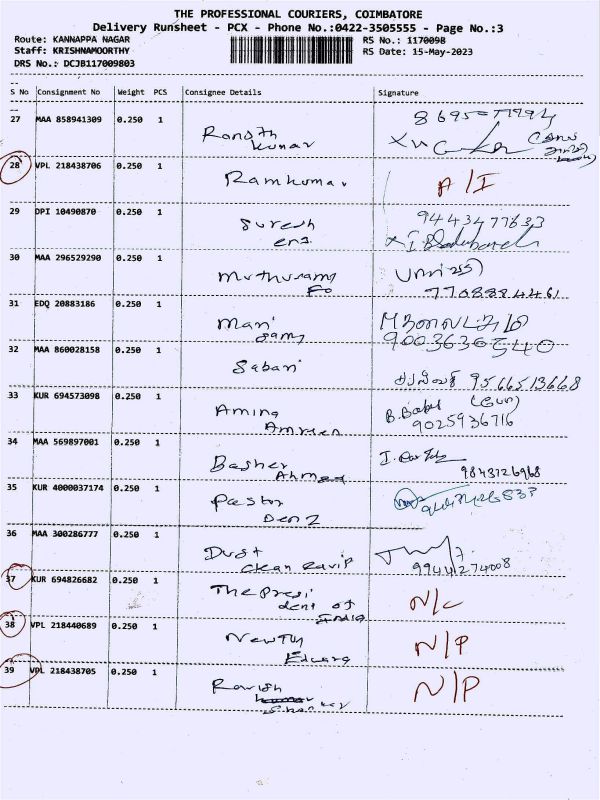 THE PROFESSIONAL COURIERS, COIMBATORE
Delivery Runsheet - PCX - Phone No.:0422-3505555 - Page No.:3
Route: KANNAPPA NAGAR RS No.: 117009B
Staff: KRISHNAMOORTHY RS Date: 15-May-2023
DRS No.: DCJB117009803
S No Consignment No Weight PCS Consignee Details Signature
27 MAA 858941309 0.250 1
Ranjith
kumar
28 VPL 218438706 0.250 1
Ramkumar A/I
29 DPI 10490870 0.250 1 9443477633
Suresh
eng.
30 MAA 296529290 0.250 1
Muthusamy
31 EDQ 20883186 0.250 1
Mani
Samy 9003636540
32 MAA 860028158 0.250 1
Sabari
9566513668
33 KUR 694573098 0.250 1
Amina B. Babu
Amreen 9025936716
34 MAA 569897001 0.250 1
Basheer
Ahmed 9843126968
35 KUR 4000037174 0.250 1
Pastor
36 MAA 300286777 0.250 1
Dust
clean 9944274008
37 KUR 694826682 0.250 1
The Presi N/C
dent of
India
38 VPL 218440689 0.250 1
N/P
39 VPL 218438705 0.250 1
N/P